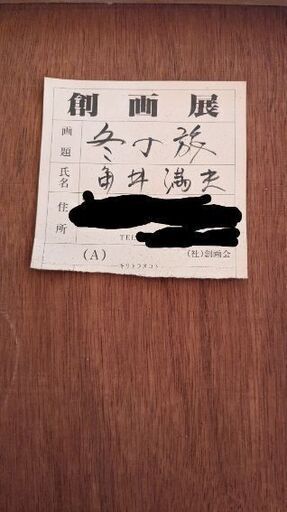 創画展
画題 冬の旅
氏名 角井満夫
住所
TEL
(A) (社)創画会
キリトラヌコト